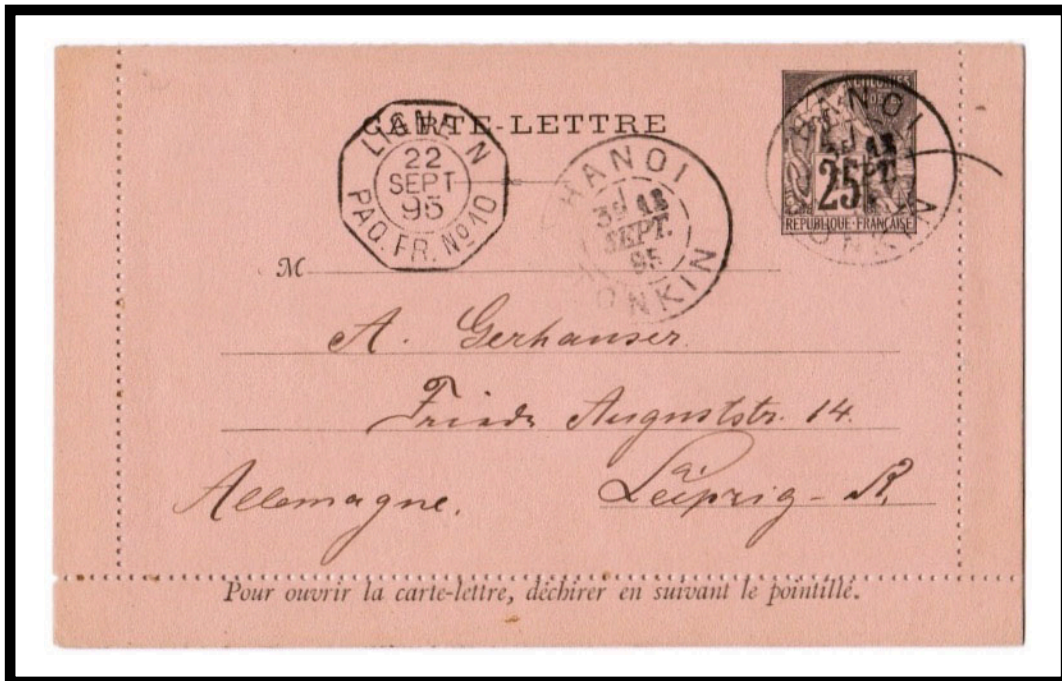 CARTE-LETTRE
LIGNE N
22
SEPT
95
PAQ. FR. Nº 10
HANOI
SEPT.
95
TONKIN
COLONIES
POSTES
HANOI
SEPT.
25
RÉPUBLIQUE FRANÇAISE
TONKIN
M
A. Gerhauser.
Friedr Auguststr. 14.
Allemagne. Leipzig - R.
Pour ouvrir la carte-lettre, déchirer en suivant le pointillé.